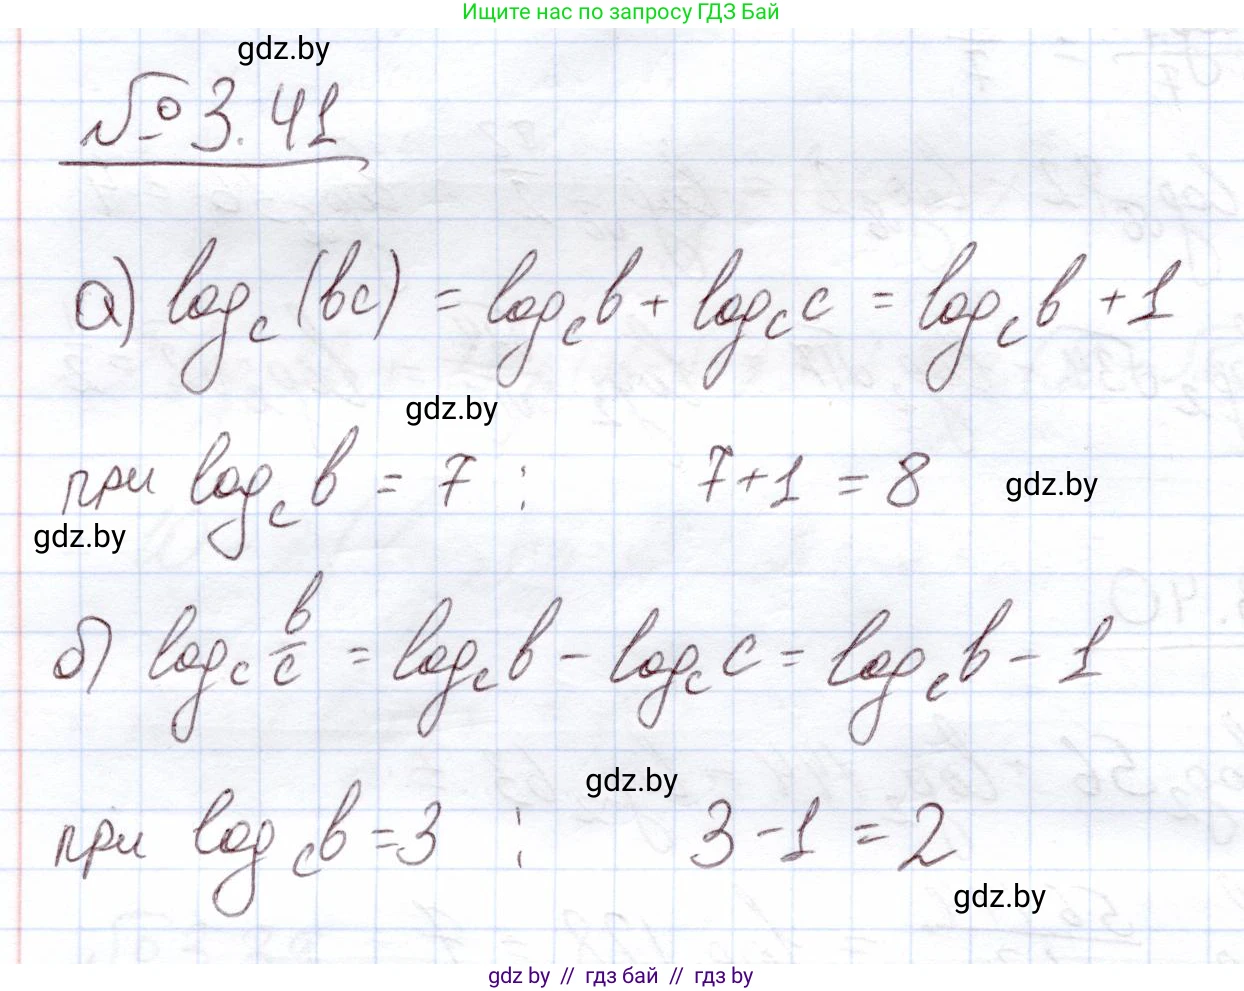 Ищите нас по запросу ГДЗ Бай
gdz.by
№ 3.41
а) log_c (bc) = log_c b + log_c c = log_c b + 1
gdz.by
при log_c b = 7 ; 7 + 1 = 8 gdz.by
gdz.by
б) log_c b/c = log_c b - log_c c = log_c b - 1
gdz.by
при log_c b = 3 ; 3 - 1 = 2
gdz.by
gdz by // гдз бай // гдз by